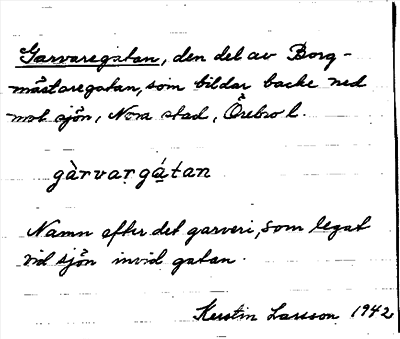 Garvaregatan, den del av Borg-
mästaregatan, som bildar backe ned
mot sjön, Nora stad, Örebro l.
gàrvar̥gá̱tan
Namn efter det garveri, som legat
vid sjön invid gatan.
Kerstin Larsson 1942